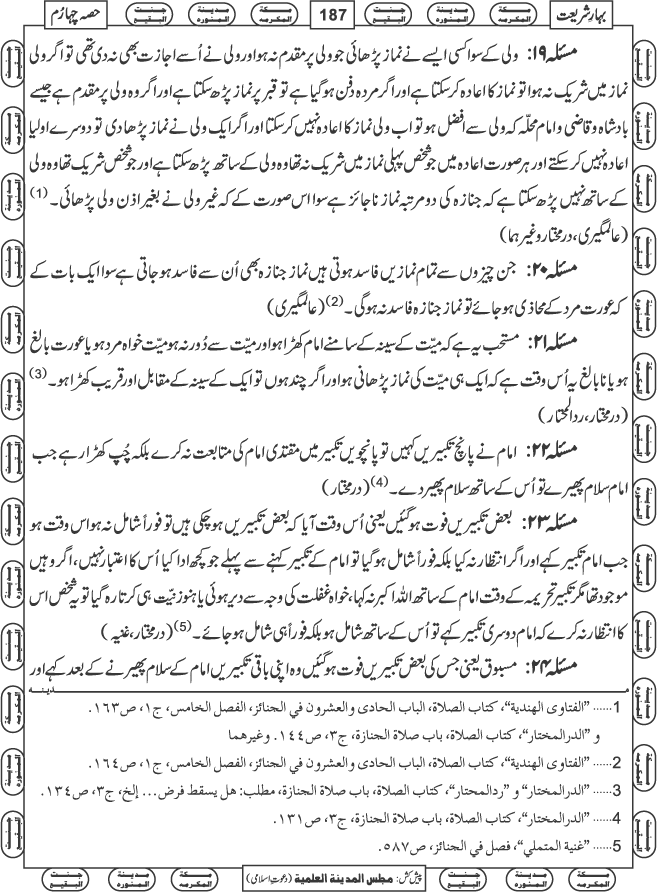 بہارِ شریعت
187
حصہ چہارم
مسئلہ ۱۹: ولی کے سوا کسی ایسے نے نماز پڑھائی جو ولی پر مقدم نہ ہو اور ولی نے اُسے اجازت بھی نہ دی تھی تو اگر ولی
نماز میں شریک نہ ہوا تو نماز کا اعادہ کرسکتا ہے اور اگر مردہ دفن ہوگیا ہے تو قبر پر نماز پڑھ سکتا ہے اور اگر وہ ولی پر مقدم ہے جیسے
بادشاہ و قاضی و امام محلّہ کہ ولی سے افضل ہو تو اب ولی نماز کا اعادہ نہیں کرسکتا اور اگر ایک ولی نے نماز پڑھا دی تو دوسرے اولیا
اعادہ نہیں کرسکتے اور ہر صورت اعادہ میں جو شخص پہلی نماز میں شریک نہ تھا وہ ولی کے ساتھ پڑھ سکتا ہے اور جو شخص شریک تھا وہ ولی
کے ساتھ نہیں پڑھ سکتا ہے کہ جنازہ کی دو مرتبہ نماز ناجائز ہے سوا اس صورت کے کہ غیر ولی نے بغیر اذن ولی پڑھائی۔ (1)
(عالمگیری، درمختار وغیرہما)
مسئلہ ۲۰: جن چیزوں سے تمام نمازیں فاسد ہوتی ہیں نماز جنازہ بھی اُن سے فاسد ہو جاتی ہے سوا ایک بات کے
کہ عورت مرد کے محاذی ہو جائے تو نماز جنازہ فاسد نہ ہوگی۔ (2) (عالمگیری)
مسئلہ ۲۱: مستحب یہ ہے کہ میّت کے سینہ کے سامنے امام کھڑا ہو اور میّت سے دُور نہ ہو میّت خواہ مرد ہو یا عورت بالغ
ہو یا نابالغ یہ اُس وقت ہے کہ ایک ہی میّت کی نماز پڑھانی ہو اور اگر چند ہوں تو ایک کے سینہ کے مقابل اور قریب کھڑا ہو۔ (3)
(درمختار، ردالمحتار)
مسئلہ ۲۲: امام نے پانچ تکبیریں کہیں تو پانچویں تکبیر میں مقتدی امام کی متابعت نہ کرے بلکہ چُپ کھڑا رہے جب
امام سلام پھیرے تو اُس کے ساتھ سلام پھیر دے۔ (4) (درمختار)
مسئلہ ۲۳: بعض تکبیریں فوت ہوگئیں یعنی اُس وقت آیا کہ بعض تکبیریں ہو چکی ہیں تو فوراً شامل نہ ہو اس وقت ہو
جب امام تکبیر کہے اور اگر انتظار نہ کیا بلکہ فوراً شامل ہوگیا تو امام کے تکبیر کہنے سے پہلے جو کچھ ادا کیا اُس کا اعتبار نہیں، اگر وہیں
موجود تھا مگر تکبیر تحریمہ کے وقت امام کے ساتھ اللہ اکبر نہ کہا، خواہ غفلت کی وجہ سے دیر ہوئی یا ہنوز نیّت ہی کرتا رہ گیا تو یہ شخص اس
کا انتظار نہ کرے کہ امام دوسری تکبیر کہے تو اُس کے ساتھ شامل ہو بلکہ فوراً ہی شامل ہو جائے۔ (5) (درمختار، غنیہ)
مسئلہ ۲۴: مسبوق یعنی جس کی بعض تکبیریں فوت ہوگئیں وہ اپنی باقی تکبیریں امام کے سلام پھیرنے کے بعد کہے اور
1...... "الفتاوى الهندية"، كتاب الصلاة، الباب الحادى والعشرون في الجنائز، الفصل الخامس، ج۱، ص۱۶۳.
و "الدرالمختار"، كتاب الصلاة، باب صلاة الجنازة، ج۳، ص۱۴۴. وغيرهما
2...... "الفتاوى الهندية"، كتاب الصلاة، الباب الحادى والعشرون في الجنائز، الفصل الخامس، ج۱، ص۱۶۴.
3...... "الدرالمختار" و "ردالمحتار"، كتاب الصلاة، باب صلاة الجنازة، مطلب: هل يسقط فرض... إلخ، ج۳، ص۱۳۴.
4...... "الدرالمختار"، كتاب الصلاة، باب صلاة الجنازة، ج۳، ص۱۳۱.
5...... "غنية المتملي"، فصل في الجنائز، ص۵۸۷.
پیش کش: مجلس المدینۃ العلمیۃ (دعوتِ اسلامی)